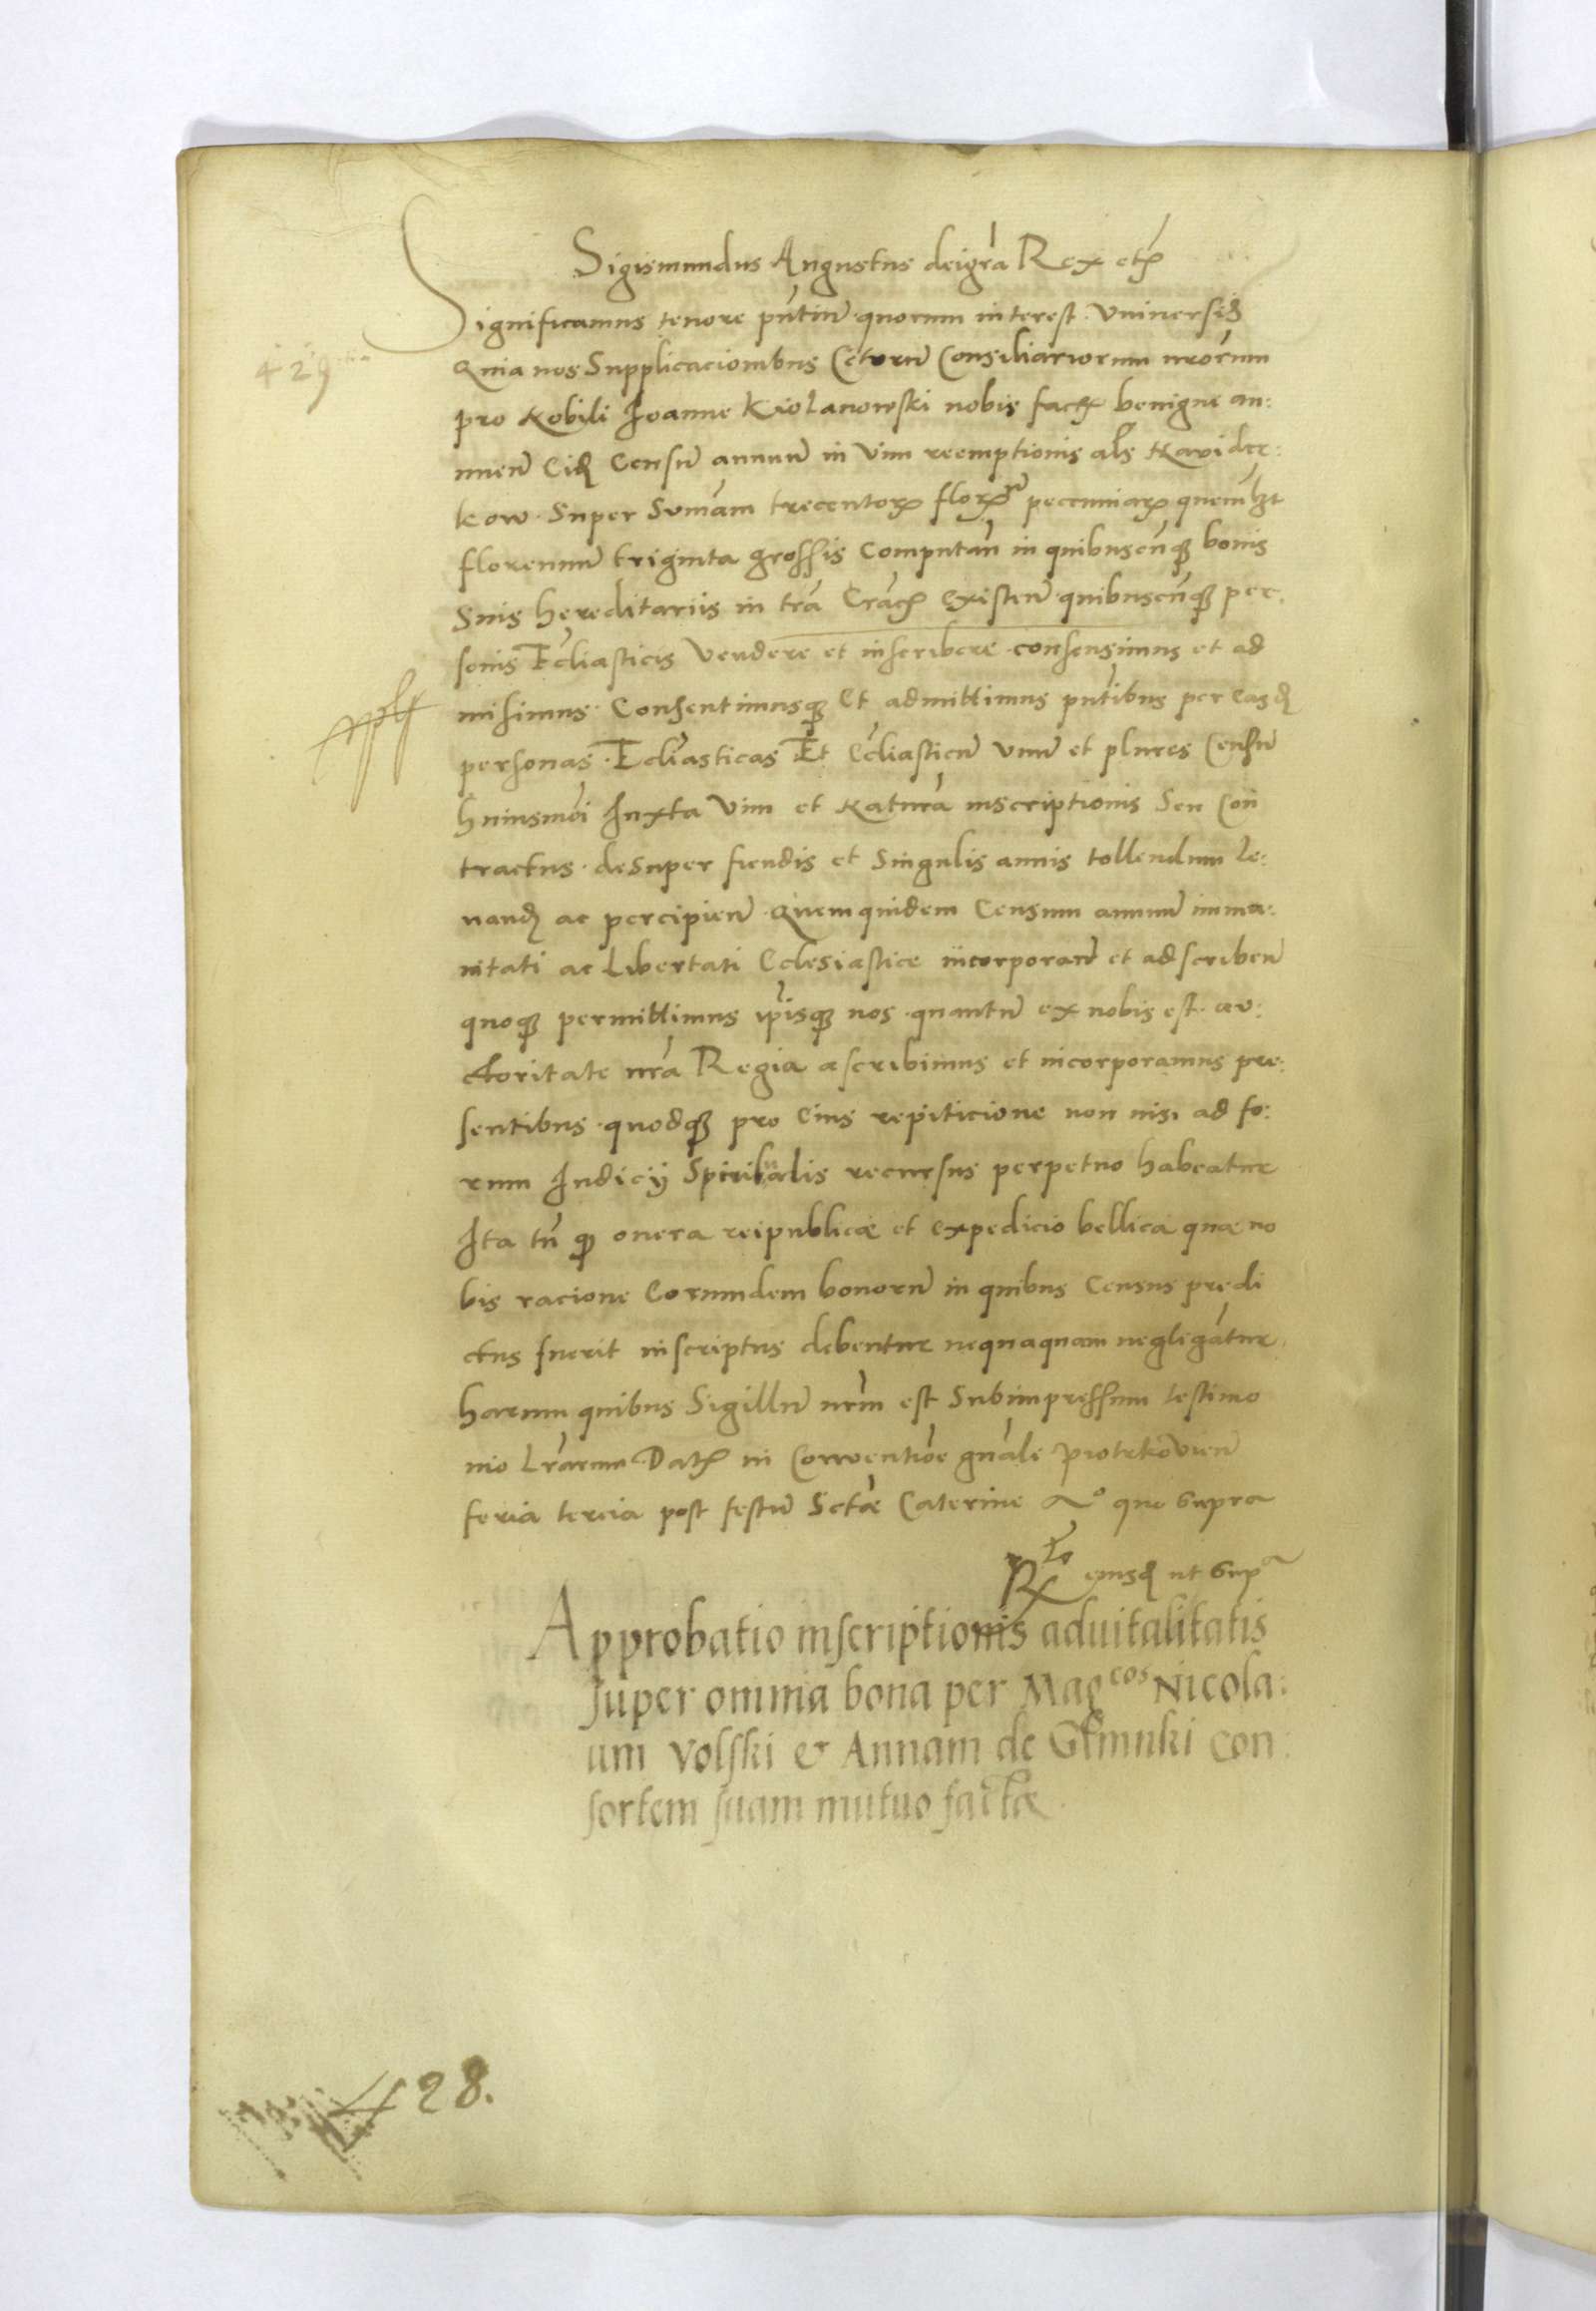 Sigismundus Augustus dei gra Rex etc
429
Significamus tenore pntiu quorum interest Universis
Quia nos Supplicacionibus Certoru Consiliariorum nrorum
pro Nobili Joanne Kiolanowski nobis fact benigne an:
nuen Eid Censu annuu in vim reemptionis als Navider:
kow Super Sumam trecentor floren pecuniar quemlzt
florenum triginta grossis computan in quibuscunq bonis
Suis hereditariis in tra Crac existen quibuscunq per:
sonis Eccliasticis vendere et inscribere consensimus et ad
misimus Consentimusq Et admittimus pntibus per easd
personas Eccliasticas Et Eccliasticu unu et plures Censu
huiusmoi Juxta vim et Natura inscriptionis Seu Con
tractus desuper fiendis et Singulis annis tollendum le:
vand ac percipien Quemquidem Censum annuu immu:
nitati ac Libertati Eclesiastice incorporand et adscriben
quoq permittimus ipisq nos quantu ex nobis est au:
ctoritate nra Regia ascribimus et incorporamus pre:
sentibus quodq pro eius repiticione non nisi ad fo:
rum Judicij Spiritualis recursus perpetuo habeatur
Ita tn q onera reipublicae et expedicio bellica quae no
bis racione Eorumdem bonoru in quibus Census predi
ctus fuerit inscriptus debentur nequaquam neglegatur
harum quibus Sigillu nrm est Subimpressum testimo
nio Lrarum Dat in Conventioe gnale Piotrkovien
feria tercia post festu Sctae Caterine Ao quo supra
Rto eiusd ut supa
Approbatio inscriptionis advitalitatis
super omnia bona per Magcos Nicola:
um Volski & Annam de con:
sortem suam mutuo factae
428.